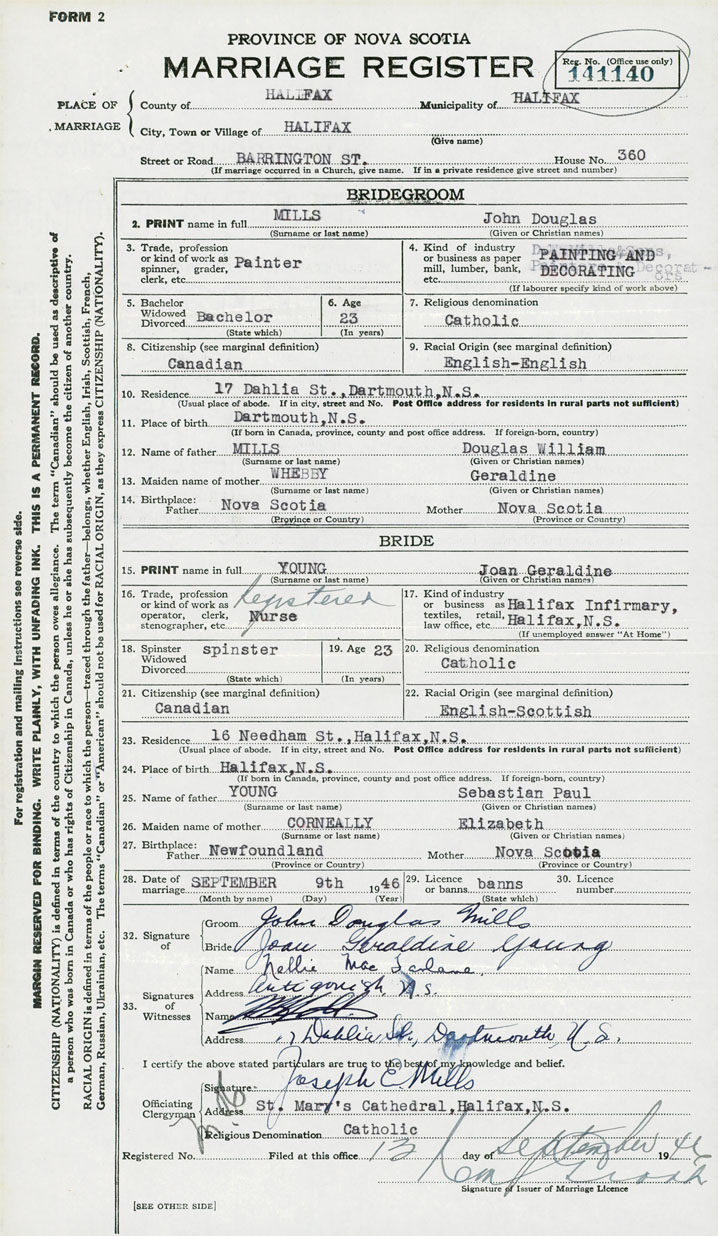 FORM 2
PROVINCE OF NOVA SCOTIA
MARRIAGE REGISTER
Reg. No. (Office use only)
141140
PLACE OF MARRIAGE
County of HALIFAX Municipality of HALIFAX
City, Town or Village of HALIFAX
(Give name)
Street or Road BARRINGTON ST. House No. 360
(If marriage occurred in a Church, give name. If in a private residence give street and number)
BRIDEGROOM
2. PRINT name in full MILLS John Douglas
(Surname or last name) (Given or Christian names)
3. Trade, profession or kind of work as spinner, grader, clerk, etc. Painter
4. Kind of industry or business as paper mill, lumber, bank, etc. PAINTING AND DECORATING
(If labourer specify kind of work above)
5. Bachelor Widowed Divorced Bachelor
(State which)
6. Age 23
(In years)
7. Religious denomination
Catholic
8. Citizenship (see marginal definition)
Canadian
9. Racial Origin (see marginal definition)
English-English
10. Residence 17 Dahlia St., Dartmouth, N.S.
(Usual place of abode. If in city, street and No. Post Office address for residents in rural parts not sufficient)
11. Place of birth Dartmouth, N.S.
(If born in Canada, province, county and post office address. If foreign-born, country)
12. Name of father MILLS Douglas William
(Surname or last name) (Given or Christian names)
13. Maiden name of mother WHEBBY Geraldine
(Surname or last name) (Given or Christian names)
14. Birthplace: Father Nova Scotia Mother Nova Scotia
(Province or Country) (Province or Country)
BRIDE
15. PRINT name in full YOUNG Joan Geraldine
(Surname or last name) (Given or Christian names)
16. Trade, profession or kind of work as operator, clerk, stenographer, etc. Registered Nurse
17. Kind of industry or business as textiles, retail, law office, etc. Halifax Infirmary, Halifax, N.S.
(If unemployed answer "At Home")
18. Spinster Widowed Divorced spinster
(State which)
19. Age 23
(In years)
20. Religious denomination
Catholic
21. Citizenship (see marginal definition)
Canadian
22. Racial Origin (see marginal definition)
English-Scottish
23. Residence 16 Needham St., Halifax, N.S.
(Usual place of abode. If in city, street and No. Post Office address for residents in rural parts not sufficient)
24. Place of birth Halifax, N.S.
(If born in Canada, province, county and post office address. If foreign-born, country)
25. Name of father YOUNG Sebastian Paul
(Surname or last name) (Given or Christian names)
26. Maiden name of mother CORNEALLY Elizabeth
(Surname or last name) (Given or Christian names)
27. Birthplace: Father Newfoundland Mother Nova Scotia
(Province or Country) (Province or Country)
28. Date of marriage SEPTEMBER 9th 1946
(Month by name) (Day) (Year)
29. Licence or banns banns
(State which)
30. Licence number
32. Signature of
Groom John Douglas Mills
Bride Joan Geraldine Young
33. Signatures of Witnesses
Name Nellie MacFarlane
Address Antigonish, N.S.
Name
Address Dahlia St., Dartmouth, N.S.
I certify the above stated particulars are true to the best of my knowledge and belief.
Officiating Clergyman
Signature Joseph E. Mills
Address St. Mary's Cathedral, Halifax, N.S.
Religious Denomination Catholic
Registered No. Filed at this office 13 day of September 1946
Signature of Issuer of Marriage Licence
[SEE OTHER SIDE]
For registration and mailing instructions see reverse side.
MARGIN RESERVED FOR BINDING. WRITE PLAINLY, WITH UNFADING INK. THIS IS A PERMANENT RECORD.
CITIZENSHIP (NATIONALITY) is defined in terms of the country to which the person owes allegiance. The term "Canadian" should be used as descriptive of
a person who was born in Canada or who has rights of Citizenship in Canada, unless he or she has subsequently become the citizen of another country.
RACIAL ORIGIN is defined in terms of the people or race to which the person—traced through the father—belongs, whether English, Irish, Scottish, French,
German, Russian, Ukrainian, etc. The terms "Canadian" or "American" should not be used for RACIAL ORIGIN, as they express CITIZENSHIP (NATIONALITY).